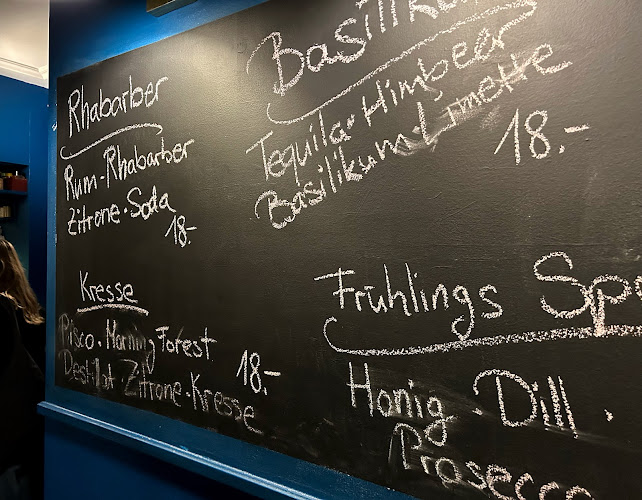 Rhabarber
Rum-Rhabarber
Zitrone·Soda
18.-
Basilikum
Tequila·Himbeer
Basilikum·Limette
18.-
Kresse
Pisco·Morning Forest
Destillat·Zitrone·Kresse
18.-
Frühlings
Honig·Dill·
Prosecco